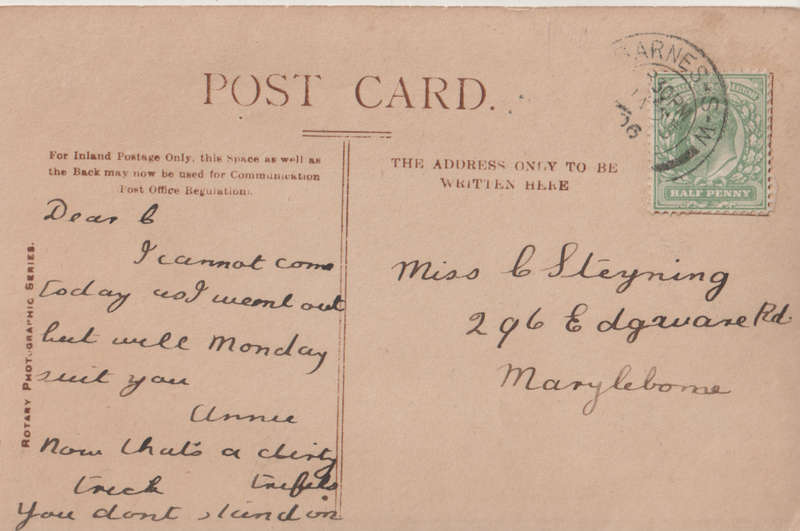 POST CARD.
For Inland Postage Only, this Space as well as
the Back may now be used for Communication
Post Office Regulation.
THE ADDRESS ONLY TO BE
WRITTEN HERE
ARNES-S-W
30PM
06
HALF PENNY
ROTARY PHOTOGRAPHIC SERIES.
Dear C
I cannot come
today as I went out
but will Monday
suit you
Annie
Now thats a dirty
trick
You dont stand on
Miss C Steyning
296 Edgware Rd.
Marylebone